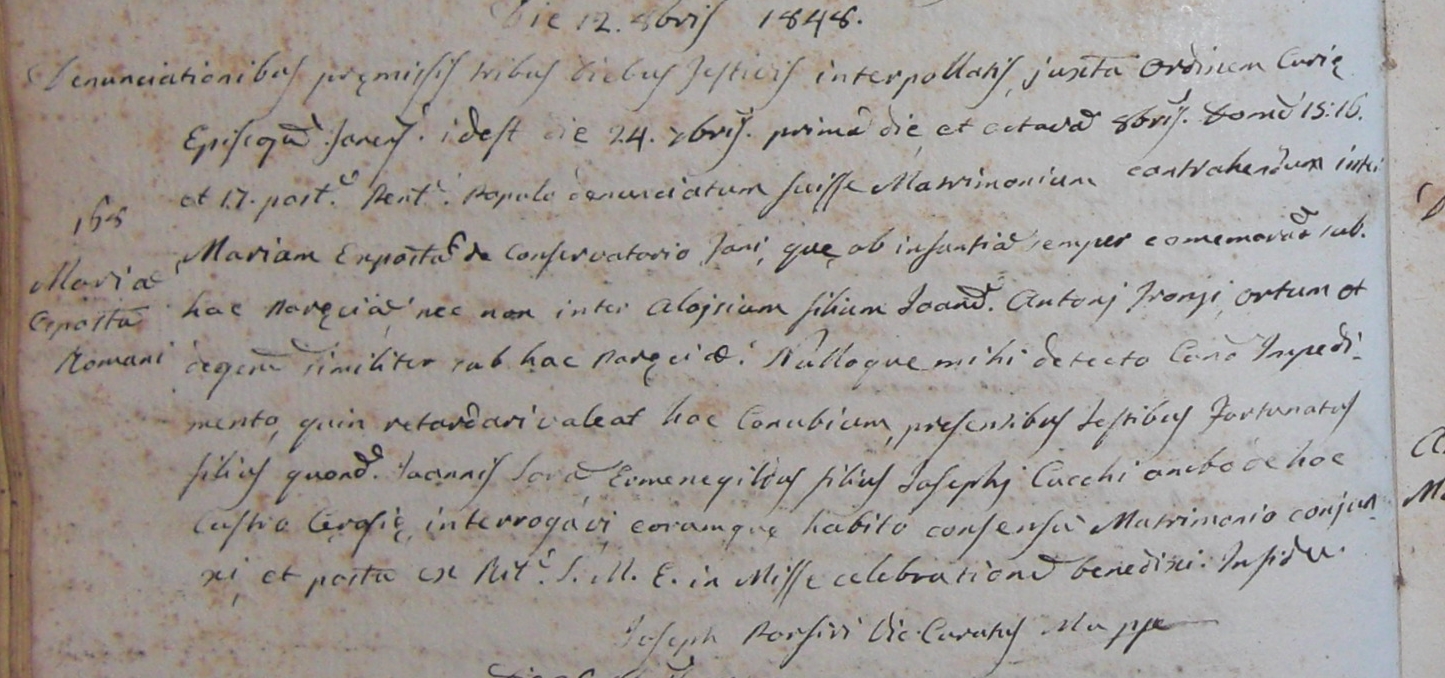 Die 12. 8bris 1848.
Denunciationibus premissis tribus diebus festivis interpollatis, juxta Ordinem Curię
idest die 24. 7bris. prima die, et octava 8bris. 15. 16.
et 17. post. Populo denunciatum fuisse Matrimonium contrahendum inter
168
Mariam Exposta de Conservatorio, quę ab infantia semper comemorat sub
Maria
hac Paręcia, nec non inter Aloysium filium Joan. Antonj Fronzi, ortum et
Exposta
Romani
degen similiter sub hac Paręcia. Nulloque mihi detecto Cano Impedi-
mento, quin retardari valeat hoc Conubium, presentibus testibus Fortunatus
filius quond. Joannis Ermenegildus filius Josephj Cucchi ambo de hoc
Castro interrogavi eorumque habito consensu Matrimonio conjun-
xi, et postea ex Rit. S. M. E. in Missę celebratione benedixi. In fide
Joseph Vic. Curatus